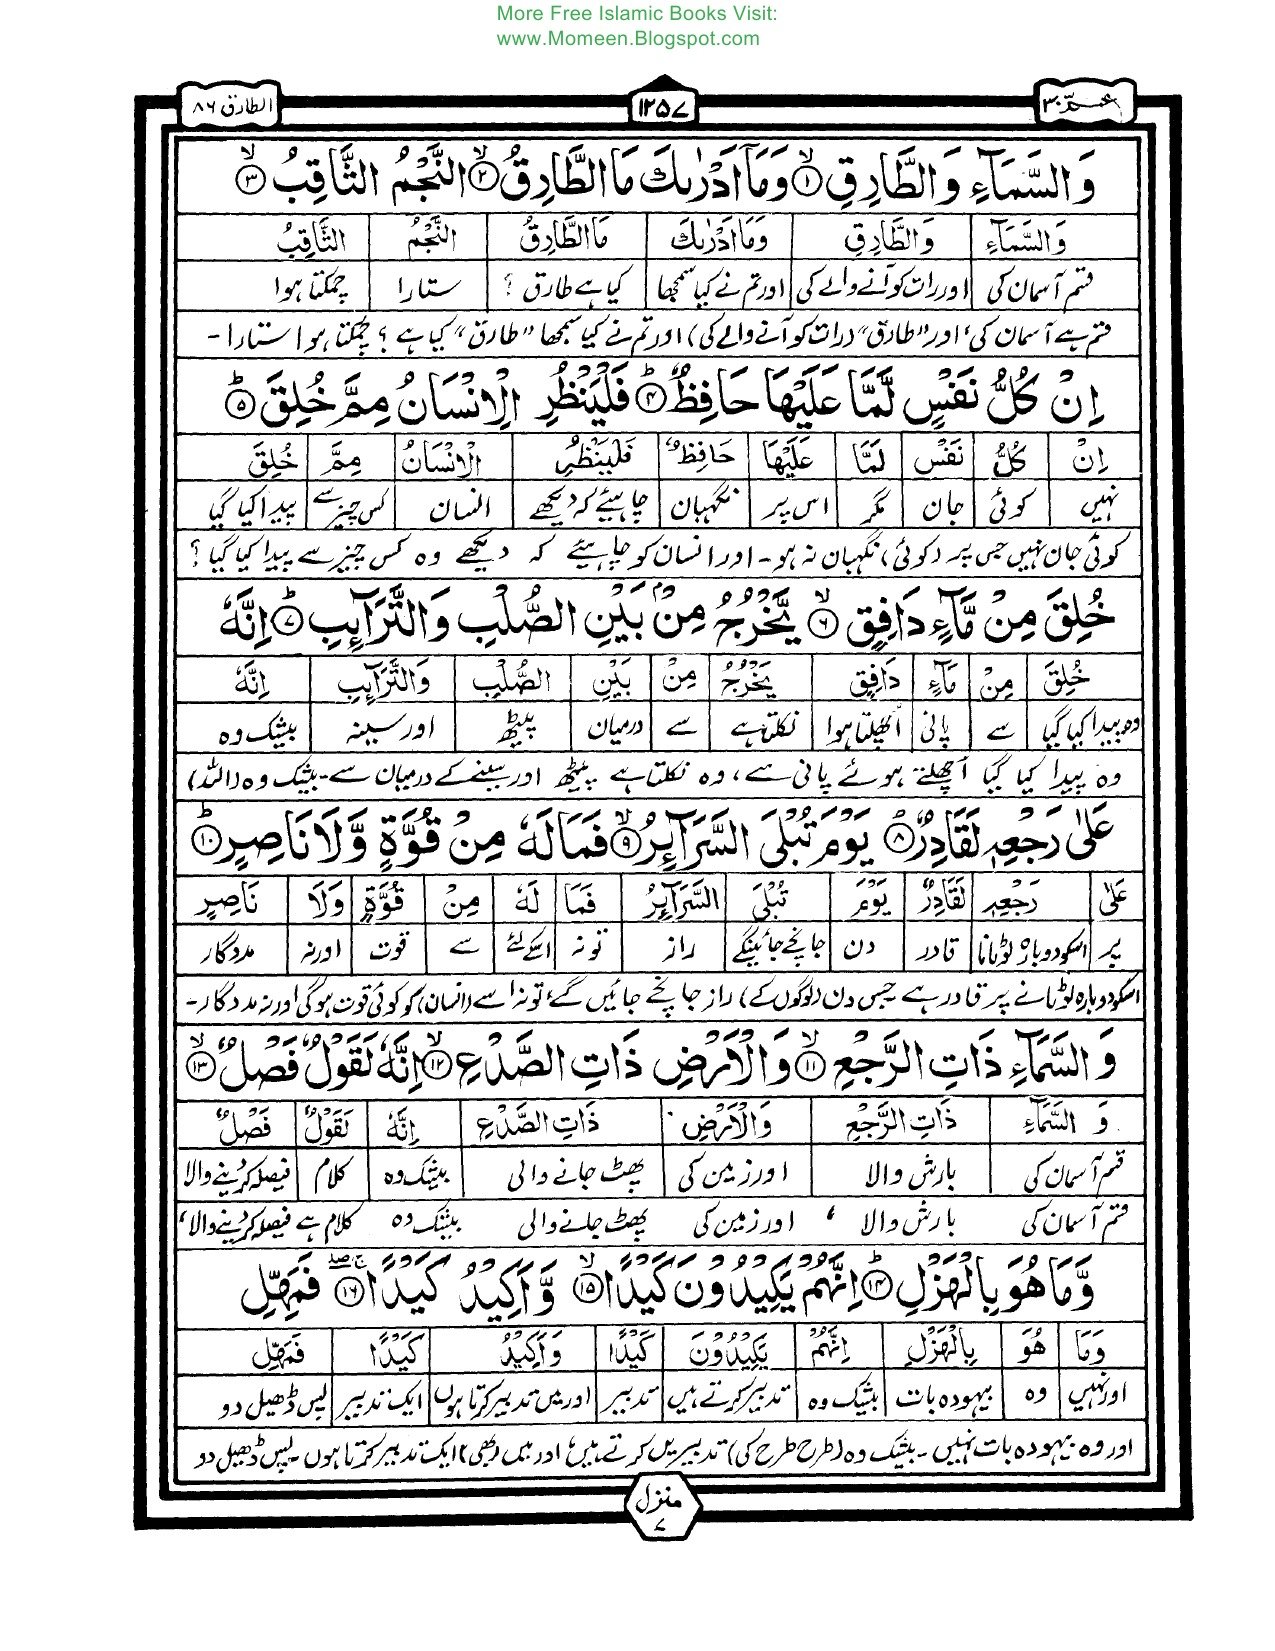 More Free Islamic Books Visit:
www.Momeen.Blogspot.com
عمّ ۳۰
۱۲۵۷
الطارق ۸۶
وَالسَّمَآءِ وَالطَّارِقِ ۙ﴿۱﴾ وَمَآ اَدْرٰىكَ مَا الطَّارِقُ ۙ﴿۲﴾ النَّجْمُ الثَّاقِبُ ۙ﴿۳﴾
وَالسَّمَآءِ وَالطَّارِقِ وَمَآ اَدْرٰىكَ مَا الطَّارِقُ النَّجْمُ الثَّاقِبُ
قسم آسمان کی اور رات کو آنے والے کی اور تم نے کیا سمجھا کیا ہے طارق ؟ ستارا چمکتا ہوا
قسم ہے آسمان کی، اور "طارق" (رات کو آنے والے کی) اور تم نے کیا سمجھا "طارق" کیا ہے ؟ چمکتا ہوا ستارا -
اِنْ كُلُّ نَفْسٍ لَّمَّا عَلَيْهَا حَافِظٌ ؕ﴿۴﴾ فَلْيَنْظُرِ الْاِنْسَانُ مِمَّ خُلِقَ ؕ﴿۵﴾
اِنْ كُلُّ نَفْسٍ لَمَّا عَلَيْهَا حَافِظٌ فَلْيَنْظُرِ الْاِنْسَانُ مِمَّ خُلِقَ
نہیں کوئی جان مگر اس پر نگہبان چاہیئے کہ دیکھے انسان کس چیز سے پیدا کیا گیا
کوئی جان نہیں جس پر (کوئی) نگہبان نہ ہو - اور انسان کو چاہیئے کہ دیکھے وہ کس چیز سے پیدا کیا گیا ؟
خُلِقَ مِنْ مَّآءٍ دَافِقٍ ۙ﴿۶﴾ يَّخْرُجُ مِنْۢ بَيْنِ الصُّلْبِ وَالتَّرَآئِبِ ؕ﴿۷﴾ اِنَّهٗ
خُلِقَ مِنْ مَّآءٍ دَافِقٍ يَخْرُجُ مِنْ بَيْنِ الصُّلْبِ وَالتَّرَآئِبِ اِنَّهٗ
وہ پیدا کیا گیا سے پانی اچھلتا ہوا نکلتا ہے سے درمیان پیٹھ اور سینہ بیشک وہ
وہ پیدا کیا گیا اچھلتے ہوئے پانی سے، وہ نکلتا ہے پیٹھ اور سینے کے درمیان سے - بیشک وہ (اللہ)
عَلٰى رَجْعِهٖ لَقَادِرٌ ؕ﴿۸﴾ يَوْمَ تُبْلَى السَّرَآئِرُ ۙ﴿۹﴾ فَمَا لَهٗ مِنْ قُوَّةٍ وَّلَا نَاصِرٍ ؕ﴿۱۰﴾
عَلٰى رَجْعِهٖ لَقَادِرٌ يَوْمَ تُبْلَى السَّرَآئِرُ فَمَا لَهٗ مِنْ قُوَّةٍ وَلَا نَاصِرٍ
پر اسکو دوبارہ لوٹانا قادر دن جانچے جائینگے راز تو نہ اسکے لئے سے قوت اور نہ مددگار
اسکو دوبارہ لوٹانے پر قادر ہے جس دن (لوگوں کے) راز جانچے جائیں گے، تو نہ اسے (انسان) کو کوئی قوت ہوگی اور نہ مددگار -
وَالسَّمَآءِ ذَاتِ الرَّجْعِ ۙ﴿۱۱﴾ وَالْاَرْضِ ذَاتِ الصَّدْعِ ۙ﴿۱۲﴾ اِنَّهٗ لَقَوْلٌ فَصْلٌ ۙ﴿۱۳﴾
وَ السَّمَآءِ ذَاتِ الرَّجْعِ وَالْاَرْضِ ذَاتِ الصَّدْعِ اِنَّهٗ لَقَوْلٌ فَصْلٌ
قسم آسمان کی بارش والا اور زمین کی پھٹ جانے والی بیشک وہ کلام فیصلہ کر دینے والا
قسم آسمان کی بارش والا ، اور زمین کی پھٹ جانے والی بیشک وہ کلام ہے فیصلہ کر دینے والا،
وَّمَا هُوَ بِالْهَزْلِ ؕ﴿۱۴﴾ اِنَّهُمْ يَكِيْدُوْنَ كَيْدًا ۙ﴿۱۵﴾ وَّاَكِيْدُ كَيْدًا ﴿۱۶﴾ فَمَهِّلِ
وَمَا هُوَ بِالْهَزْلِ اِنَّهُمْ يَكِيْدُوْنَ كَيْدًا وَاَكِيْدُ كَيْدًا فَمَهِّلِ
اور نہیں وہ بیہودہ بات بیشک وہ تدبیر کرتے ہیں تدبیر اور میں تدبیر کرتا ہوں ایک تدبیر پس ڈھیل دو
اور وہ بیہودہ بات نہیں - بیشک وہ (طرح طرح کی) تدبیریں کرتے ہیں، اور میں (بھی) ایک تدبیر کرتا ہوں پس ڈھیل دو
منزل
۷